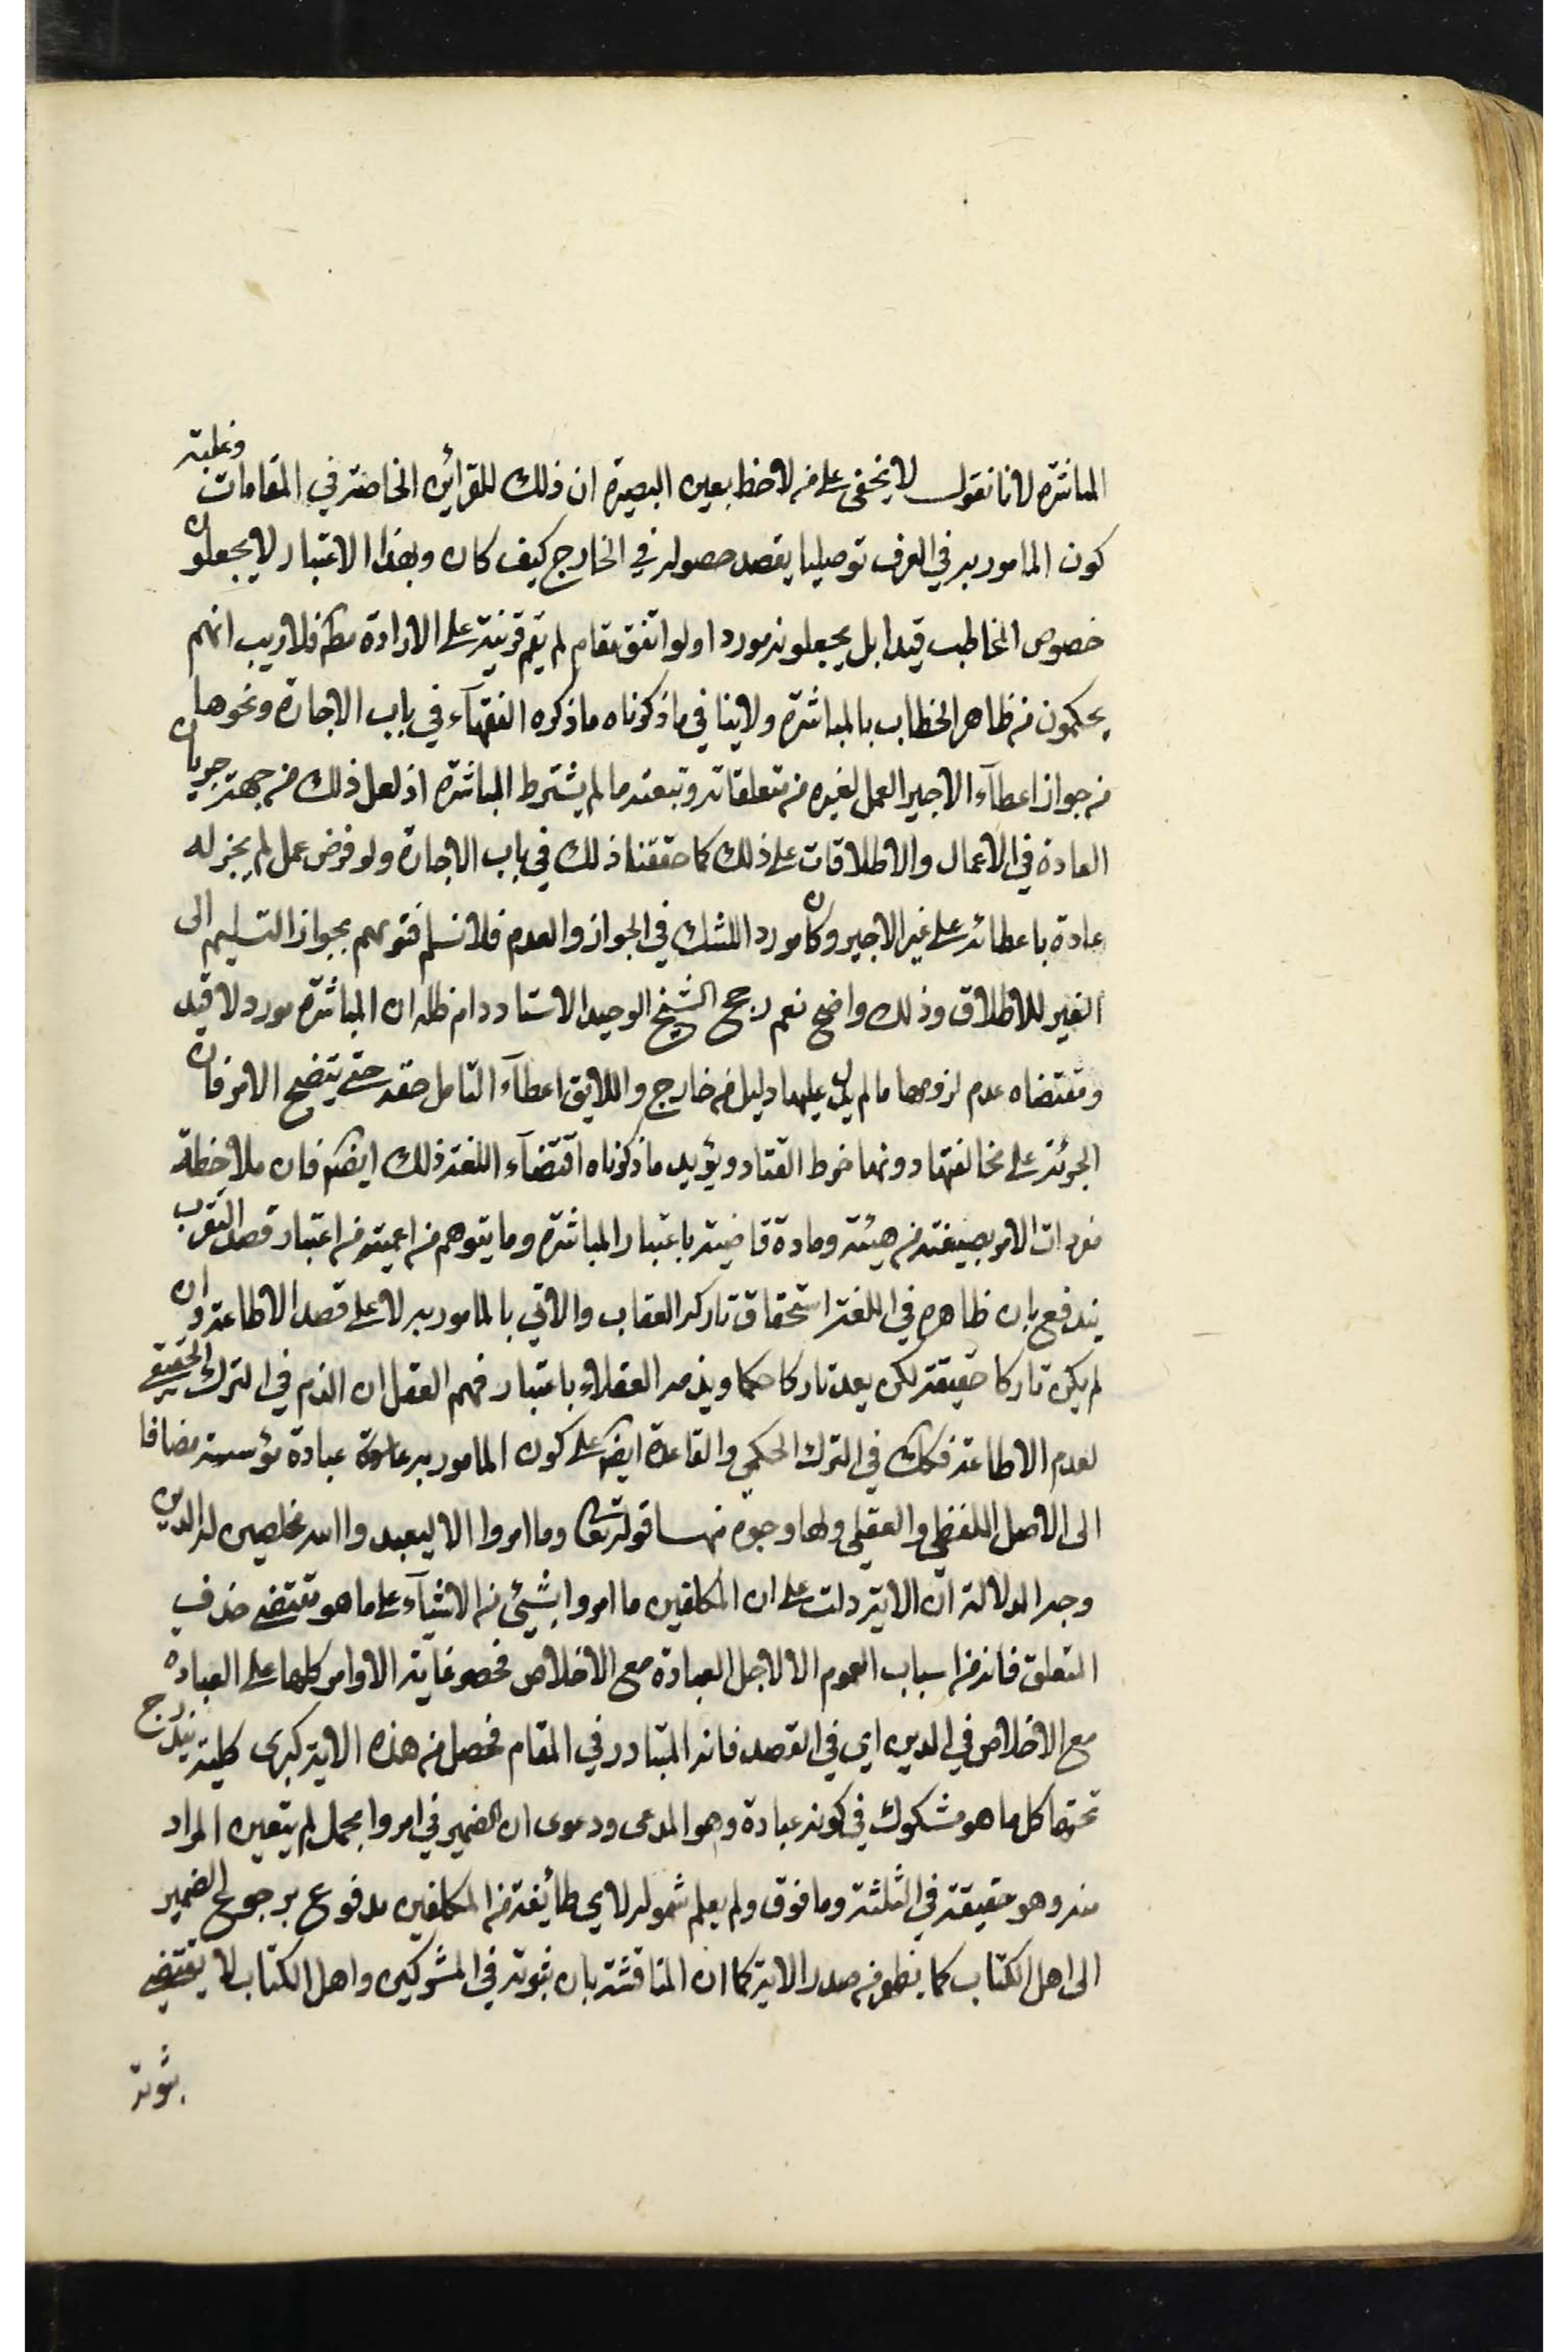 المباشرة لانا نقول لا يخفى على من لاحظ بعين البصيرة ان ذلك للقرائن الخاصة في المقامات وغلبة
كون المامور به في العرف توصليا يقصد حصوله في الخارج كيف كان وبهذا الاعتبار لا يجعلون
خصوص المخاطب قيدا بل يجعلونه موردا ولو اتفق مقام لم يقم قرينة على الارادة مط فلا ريب انهم
يحكمون من ظاهر الخطاب بالمباشرة ولا ينافي ما ذكرناه ما ذكره الفقهآء في باب الاجارة ونحوها
من جواز اعطآء الاجير العمل لغيره من متعلقاته وتبعته ما لم يشترط المباشرة اذ لعل ذلك من جهة جريان
العادة في الاعمال والاطلاقات على ذلك كما حققنا ذلك في باب الاجارة ولو فرض عمل لم يجز له
عادة باعطائه على غير الاجير وكان موردا للشك في الجواز والعدم فلا نسلم فتويهم بجواز التسليم الى
الغير للاطلاق وذلك واضح نعم رجح الشيخ الوحيد الاستاد دام ظله ان المباشرة مورد لا قيد
ومقتضاه عدم لزومها ما لم يدل عليها دليل من خارج واللايق اعطآء التامل حقه حتى يتضح الامر فان
الجرئة على مخالفتها دونها خرط القتاد ويؤيد ما ذكرناه اقتضآء اللغة ذلك ايضا فان ملاحظة
مفردات الامر بصيغته من هيئة ومادة قاضية باعتبار المباشرة وما يتوهم من اعميته من اعتبار قصد التقرب
يندفع بان ظاهره في اللغة استحقاق تاركه العقاب والاتي بالمامور به لا على قصد الاطاعة وان
لم يكن تاركا حقيقة لكن يعد تاركا حكما ويذمه العقلاء باعتبار فهم العقل ان الذم في الترك الحقيقي
لعدم الاطاعة فكك في الترك الحكمي والقاعدة ايضا على كون المامور به عبادة مؤسسة مضافا
الى الاصل اللفظي والعقلي ولها وجوه منها قوله تعا وما امروا الا ليعبدوا الله مخلصين له الدين
وجه الدلالة ان الاية دلت على ان المكلفين ما امروا بشيئ من الاشيآء على ما هو مقتضى حذف
المتعلق فانه من اسباب العموم الا لاجل العبادة مع الاخلاص فحصر غاية الاوامر كلها على العبادة
مع الاخلاص في الدين اي في القصد فانه المتبادر في المقام فحصل من هذه الاية كبرى كلية يندرج
تحتها كل ما هو مشكوك في كونه عبادة وهو المدعى ودعوى ان الضمير في امروا مجمل لم يتعين المراد
منه وهو حقيقة في الثلثة وما فوق ولم يعلم شموله لاي طائفة من المكلفين مدفوع برجوع الضمير
الى اهل الكتاب كما يظهر من صدر الاية كما ان المناقشة بان ثبوته في المشركين واهل الكتاب لا يقتضي
ثبوته